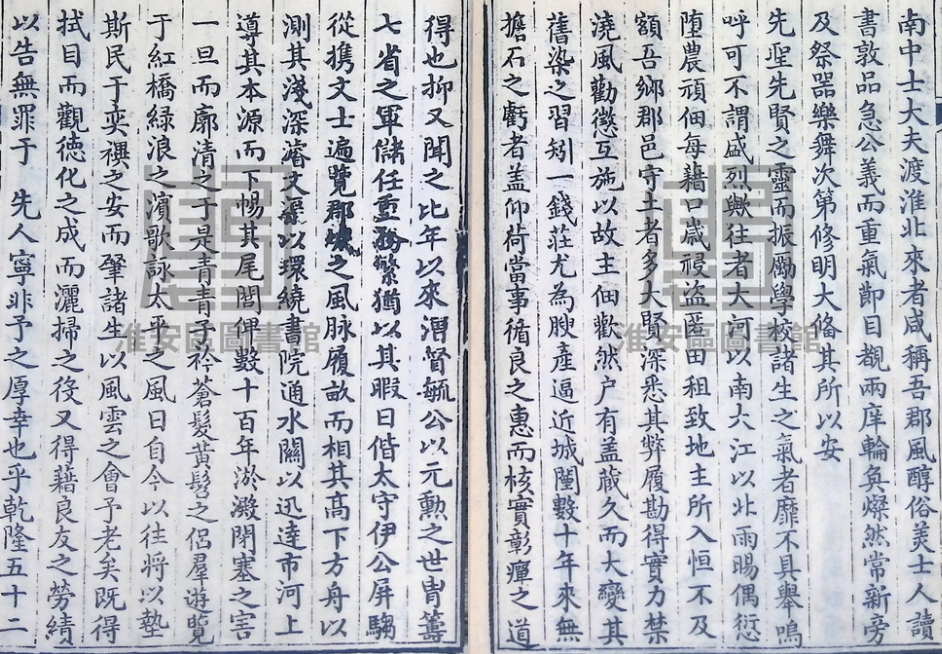 南中士大夫渡淮北來者咸稱吾郡風醇俗美士人讀
書敦品急公義而重氣節目覩兩庠輪奐燦然常新旁
及祭器樂舞次第修明大備其所以安
先聖先賢之靈而振勵學校諸生之氣者靡不具舉嗚
呼可不謂盛烈歟往者大河以南大江以北雨暘偶愆
堕農頑佃每藉口歲祲盜匿田租致地主所入恒不及
額吾鄉郡邑守土者多大賢深悉其弊履勘得實力禁
澆風勸懲互施以故主佃歡然户有蓋藏久而大變其
舊染之習矧一錢莊尤為腴產逼近城闉數十年來無
擔石之虧者盖仰荷當事循良之惠而核實彰癉之道
得也抑又聞之比年以來漕督毓公以元勳之世胄籌
七省之軍儲任重務繁猶以其暇日偕太守伊公屏騶
從携文士遍覽郡城之風脉履畝而相其高下方舟以
測其淺深濬文渠以環繞書院通水關以迅達市河上
導其本源而下暢其尾閭俾數十百年淤澱閉塞之害
一旦而廓清之于是青青子衿蒼髮黃髫之侣羣遊覽
于紅橋綠浪之濱歌詠太平之風日自今以往將以墊
斯民于奕禩之安而肇諸生以風雲之會予老矣既得
拭目而觀德化之成而灑掃之役又得藉良友之勞績
以告無罪于 先人寧非予之厚幸也乎乾隆五十二
淮安區圖書館
淮安區圖書館